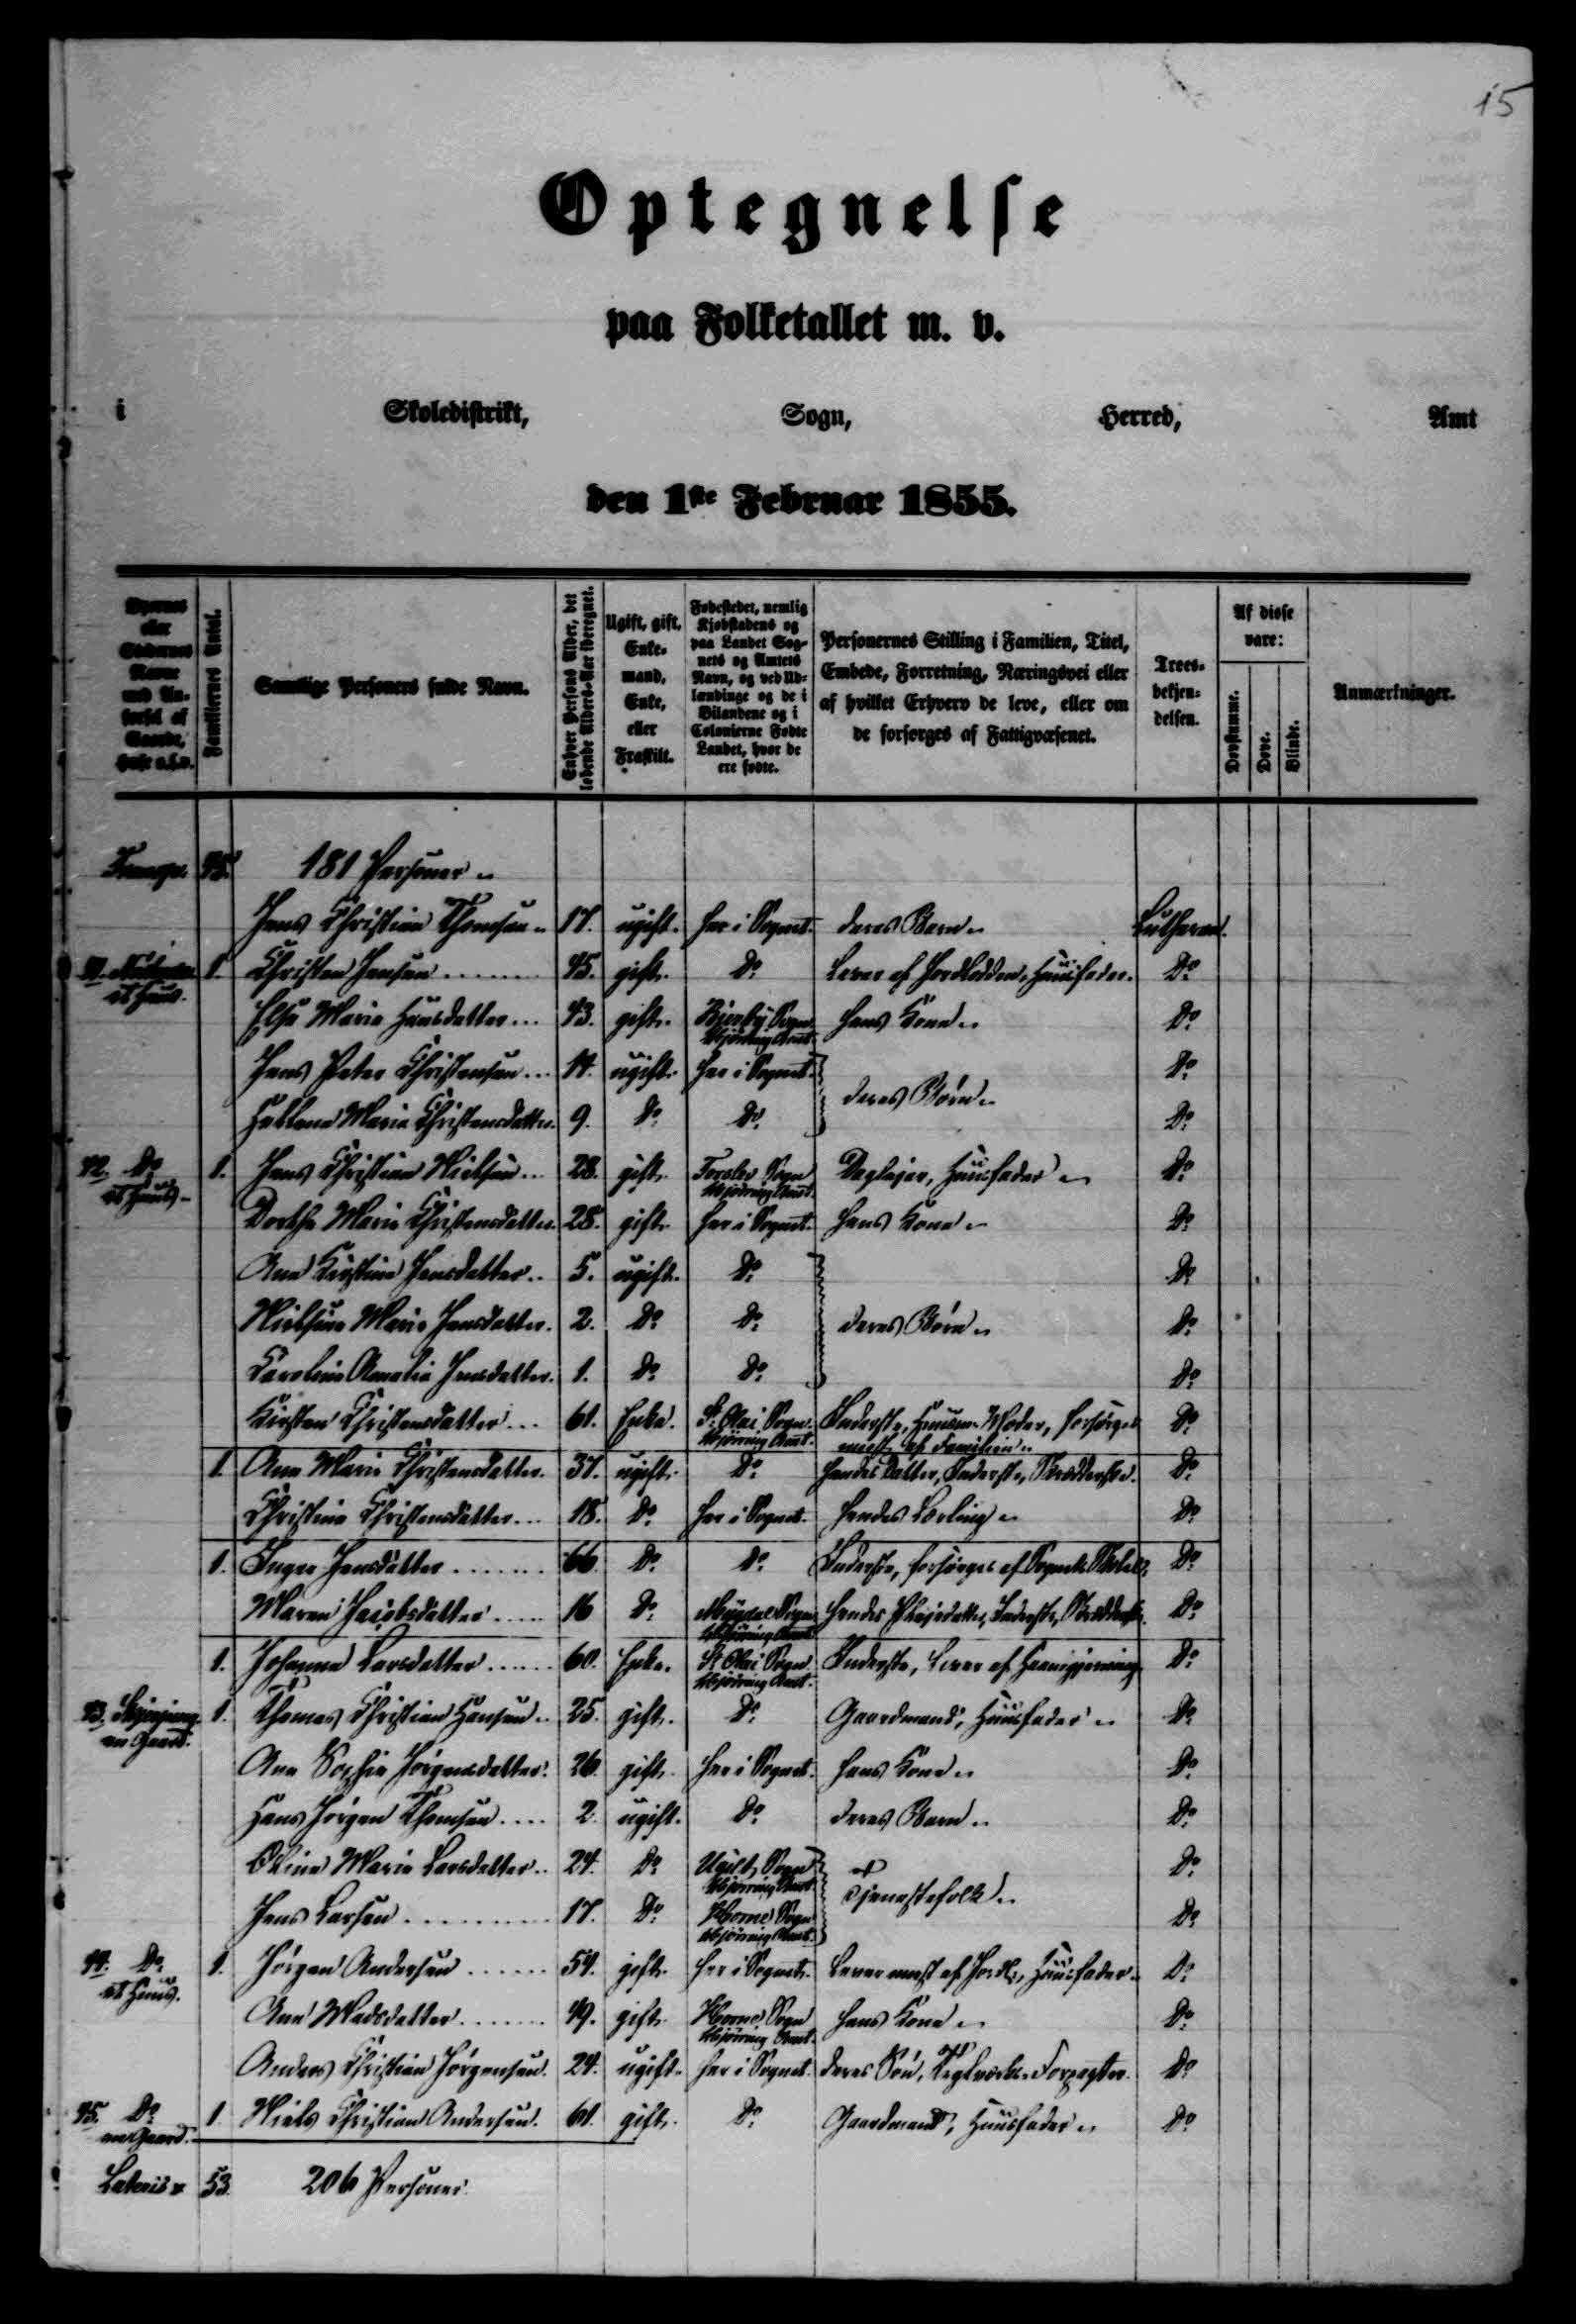 15
Optegnelse
paa Folketallet m. v.
i Skoledistrikt, Sogn, Herred, Amt
den 1ste Februar 1855.
Byernes eller Stedernes Navne med Antal af Gaarde, Huse o.s.v.
Familiernes Antal.
Samtlige Personers fulde Navn.
Enhver Persons Alder, det løbende Alders-Aar iberegnet.
Ugift, gift, Enkemand, Enke, eller Fraskilt.
Fødestedet, nemlig Kjøbstadens og paa Landet Sognets og Amtets Navn, og ved Udlændinge og de i Bilandene og i Colonierne Fødte Landet, hvor de ere fødte.
Personernes Stilling i Familien, Titel, Embede, Forretning, Næringsvei eller af hvilket Erhverv de leve, eller om de forsørges af Fattigvæsenet.
Troes-bekjen-delsen.
Af disse vare:
Døvstumme.
Døve.
Blinde.
Anmærkninger.
181 Personer
Jens Christian Thomsen 17. ugift. her i Sognet. deres Barn Lutheran.
et Huus. 1. Christen Jensen 45. gift. Do Lever af Jordlodden, Huusfader. Do
Else Marie Hansdatter 43. gift. Bjerby Sogn Hjørring Amt. hans Kone Do
Jens Peter Christensen 14. ugift. her i Sognet. deres Børn Do
Marie Christensdatter 9. Do Do Do
42. Do et Huus 1. Jens Christian Nielsen 28. gift. Torslev Sogn Hjørring Amt. Daglejer, Huusfader Do
Dorthe Marie Christensdatter 28. gift. her i Sognet. hans Kone Do
Ane Kirstine Jensdatter 5. ugift. Do Do
Nielsine Marie Jensdatter. 2. Do Do deres Børn Do
Caroline Amalie Jensdatter. 1. Do Do Do
Kirsten Christensdatter 61. Enke. St. Olai Sogn Hjørring Amt. Inderste, Moder, forsørges af Familien Do
1. Ane Marie Christensdatter. 37. ugift. Do hendes Datter, Inderste, Do
Christine Christensdatter 18. Do her i Sognet. hendes Lærling Do
1. Inger Jensdatter 66. Do Do Inderste, forsørges af Sognets Do
Maren Jacobsdatter 16 Do Mygdal Sogn Hjørring Amt. hendes Plejedatter, Inderste, Do
1. Johanne Larsdatter 60. Enke. St. Olai Sogn Hjørring Amt. Inderste, lever af Haandgjerning Do
43. en Gaard. 1. Thomas Christian Hansen 25. gift. Do Gaardmand, Huusfader Do
Ane Sophie Jørgensdatter. 26. gift. her i Sognet. hans Kone Do
Hans Jørgen Thomsen 2. ugift. Do deres Barn Do
Oline Marie Larsdatter 24. Do Ugilt Sogn Hjørring Amt. Tjenestefolk Do
Jens Larsen 17. Do Horne Sogn Hjørring Amt. Do
44. Do et Huus. 1. Jørgen Andersen 54. gift. her i Sognet. Lever mest af Jordl., Huusfader Do
Ane Madsdatter 49. gift. Horne Sogn Hjørring Amt. hans Kone Do
Anders Christian Jørgensen. 24. ugift. her i Sognet. deres Søn, Teglværks-Forpagter. Do
45. Do en Gaard. 1. Niels Christian Andersen. 61. gift. Do Gaardmand, Huusfader Do
Lateris 53. 206 Personer.